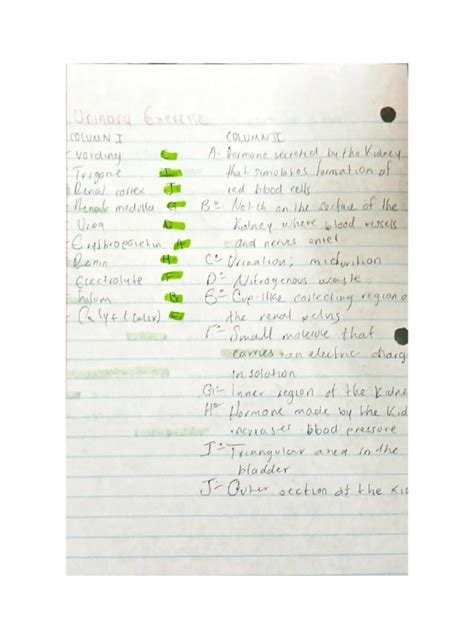 Urinary Exercise
COLUMN I COLUMN II
- Voiding C A- Hormone secreted by the Kidney
- Trigone I that simulates formation of
- Renal cortex J red blood cells
- Renal medulla G B- Notch on the surface of the
Urea D Kidney where blood vessels
- Erythropoietin A and nerves enter
- Renin H C- Urination; micturition
- Electrolyte F D- Nitrogenous waste
- hilum B E- Cup-like collecting region o
- Calyx (calix) E the renal pelvis
F- Small molecule that
carries an electric charg
in solution
G- Inner region of the Kidne
H- Hormone made by the Kid
increases blood pressure
I- Triangular area in the
bladder
J- Outer section of the Kid